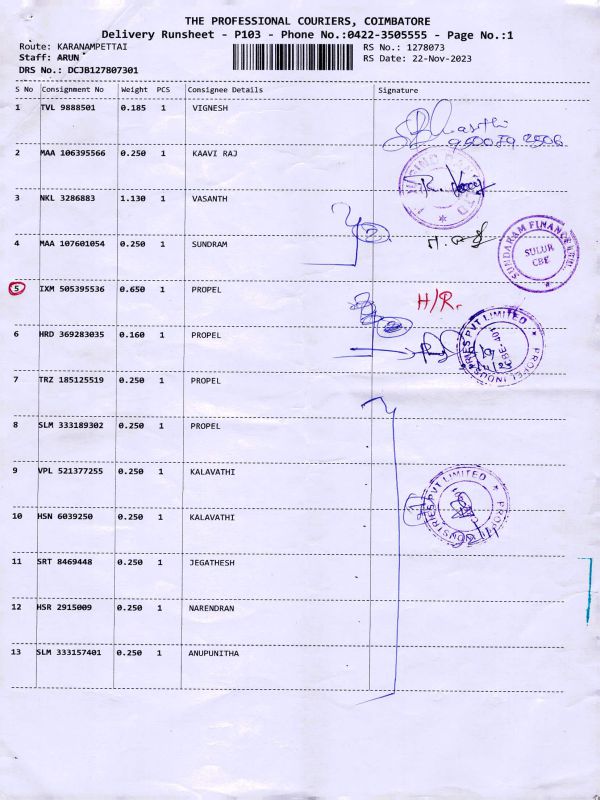 THE PROFESSIONAL COURIERS, COIMBATORE
Delivery Runsheet - P103 - Phone No.:0422-3505555 - Page No.:1
Route: KARANAMPETTAI RS No.: 1278073
Staff: ARUN RS Date: 22-Nov-2023
DRS No.: DCJB127807301
S No Consignment No Weight PCS Consignee Details Signature
1 TVL 9888501 0.185 1 VIGNESH
2 MAA 106395566 0.250 1 KAAVI RAJ
3 NKL 3286883 1.130 1 VASANTH
4 MAA 107601054 0.250 1 SUNDRAM
SUNDARAM FINANCE
SULUR
CBE
5 IXM 505395536 0.650 1 PROPEL H/R.
6 HRD 369283035 0.160 1 PROPEL
PROPEL INDUSTRIES PVT LIMITED
CBE-401
7 TRZ 185125519 0.250 1 PROPEL
8 SLM 333189302 0.250 1 PROPEL
9 VPL 521377255 0.250 1 KALAVATHI
10 HSN 6039250 0.250 1 KALAVATHI
11 SRT 8469448 0.250 1 JEGATHESH
12 HSR 2915009 0.250 1 NARENDRAN
13 SLM 333157401 0.250 1 ANUPUNITHA